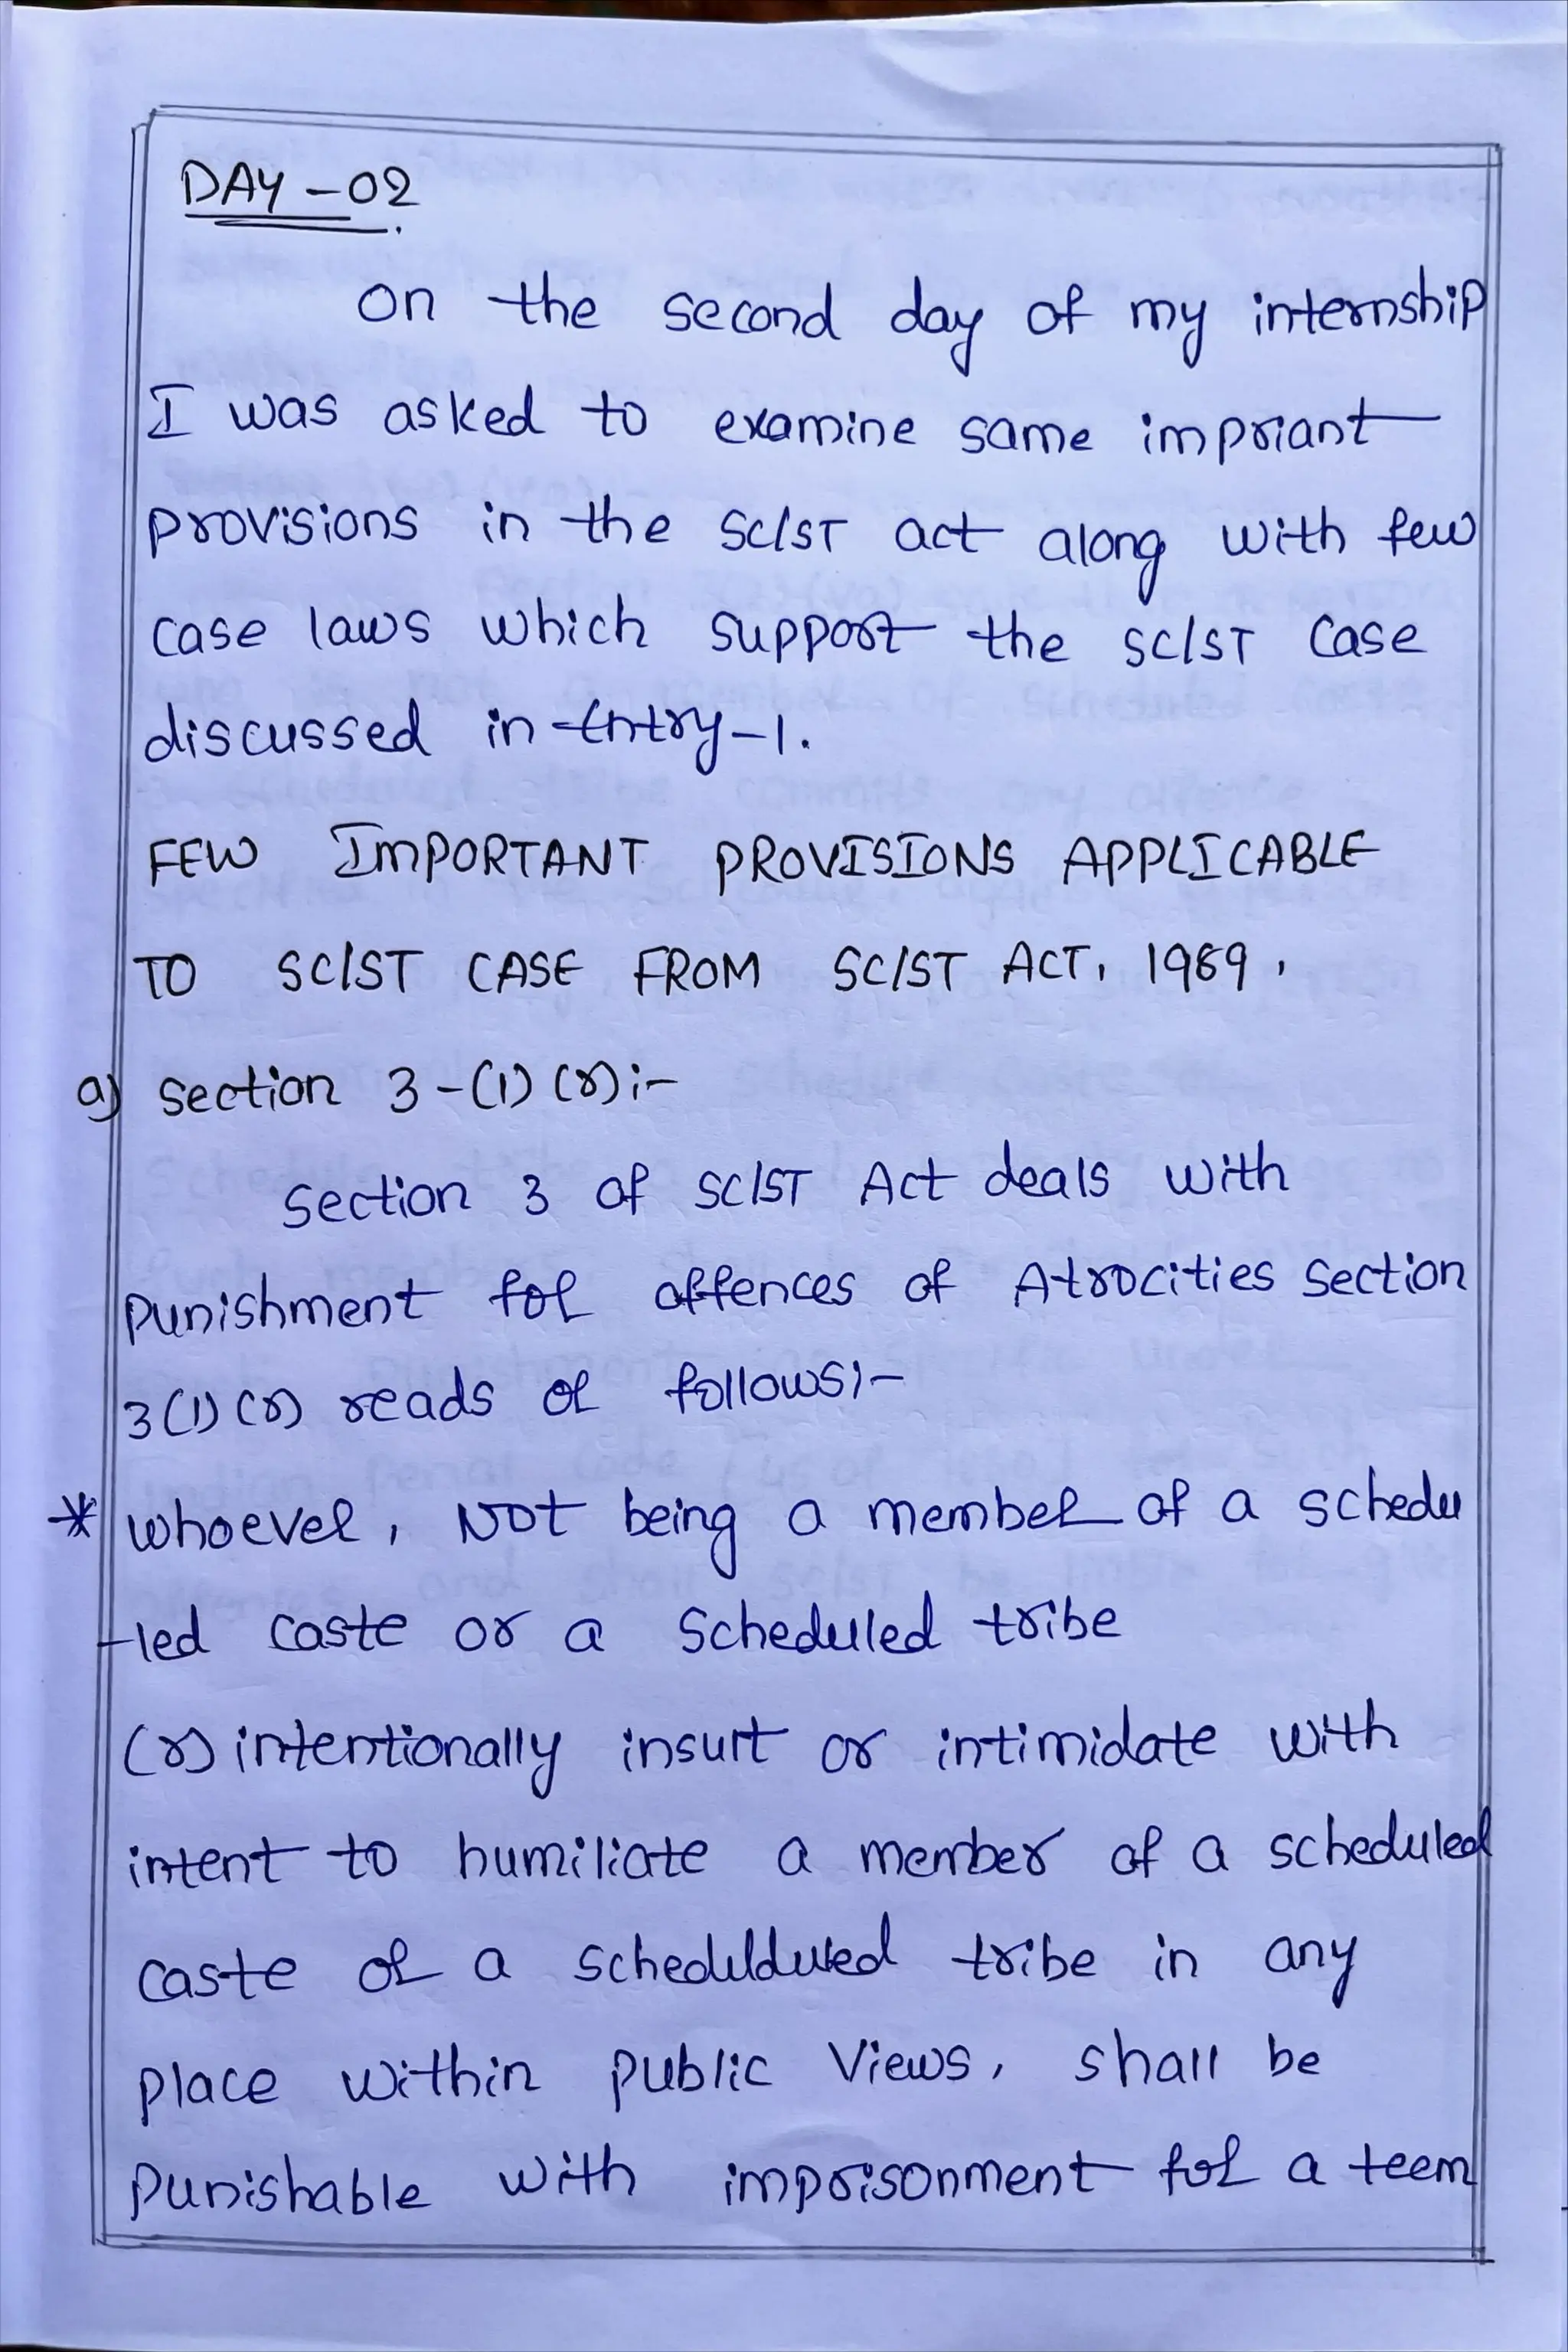 DAY-02
on the second day of my internship
I was asked to examine same impriant
provisions in the SC/ST act along with few
case laws which support the SC/ST Case
discussed in Entry-1.
FEW IMPORTANT PROVISIONS APPLICABLE
TO SC/ST CASE FROM SC/ST ACT, 1989,
a) section 3-(1)(r):-
section 3 of SC/ST Act deals with
punishment for offences of Atrocities Section
3(1)(r) reads of follows:-
* whoever, Not being a member of a schedu
-led caste or a Scheduled tribe
(r) intentionally insurt or intimidate with
intent to humiliate a member of a scheduled
caste or a tribe in any
place within public Views, shall be
punishable with imprisonment for a teem